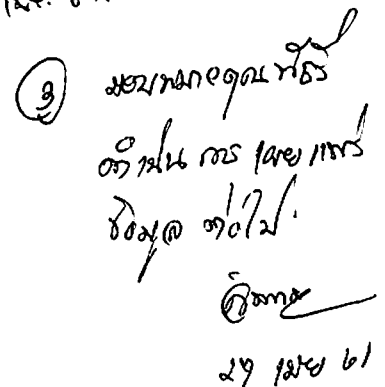 ③ มอบหมายคุณ
ดำเนินการเผยแพร่
ข้อมูลต่อไป
เมย 61